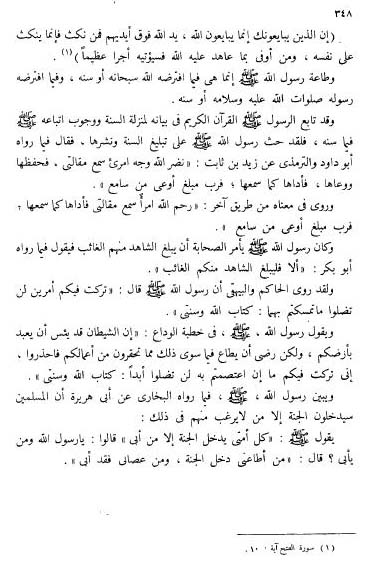 ٣٤٨
(إن الذين يبايعونك إنما يبايعون الله ، يد الله فوق أيديهم فمن نكث فإنما ينكث
على نفسه ، ومن أوفى بما عاهد عليه الله فسيؤتيه أجرا عظيماً)(١) .
وطاعة رسول الله ﷺ إنما هى فيما افترضه الله سبحانه أو سنه ، وفيما افترضه
رسوله صلوات الله عليه وسلامه أو سنه .
وقد تابع الرسول ﷺ القرآن الكريم فى بيانه لمنزلة السنة ووجوب اتباعه ﷺ
فيما سنه ، فلقد حث رسول الله ﷺ على تبليغ السنة ونشرها ، فقال فيما رواه
أبو داود والترمذى عن زيد بن ثابت : « نضر الله وجه امرئ سمع مقالتى ، فحفظها
ووعاها ، فأداها كما سمعها ؛ فرب مبلغ أوعى من سامع » .
وروى فى معناه من طريق آخر : « رحم الله امرأ سمع مقالتى فأداها كما سمعها ؛
فرب مبلغ أوعى من سامع » .
وكان رسول الله ﷺ يأمر الصحابة أن يبلغ الشاهد منهم الغائب فيقول فيما رواه
أبو بكر : « ألا فليبلغ الشاهد منكم الغائب » .
ولقد روى الحاكم والبيهقى أن رسول الله ﷺ قال : « تركت فيكم أمرين لن
تضلوا ماتمسكتم بهما : كتاب الله وسنتى » .
ويقول رسول الله ، ﷺ ، فى خطبة الوداع : « إن الشيطان قد يئس أن يعبد
بأرضكم ، ولكن رضى أن يطاع فيما سوى ذلك مما تحقرون من أعمالكم فاحذروا ،
إنى تركت فيكم ما إن اعتصمتم به لن تضلوا أبداً : كتاب الله وسنتى » .
ويبين رسول الله ، ﷺ ، فيما رواه البخارى عن أبى هريرة أن المسلمين
سيدخلون الجنة إلا من لايرغب منهم فى ذلك :
يقول ﷺ : « كل أمتى يدخل الجنة إلا من أبى » قالوا : يارسول الله ومن
يأبى ؟ قال : « من أطاعنى دخل الجنة ، ومن عصانى فقد أبى » .
(١) سورة الفتح آية : ١٠.